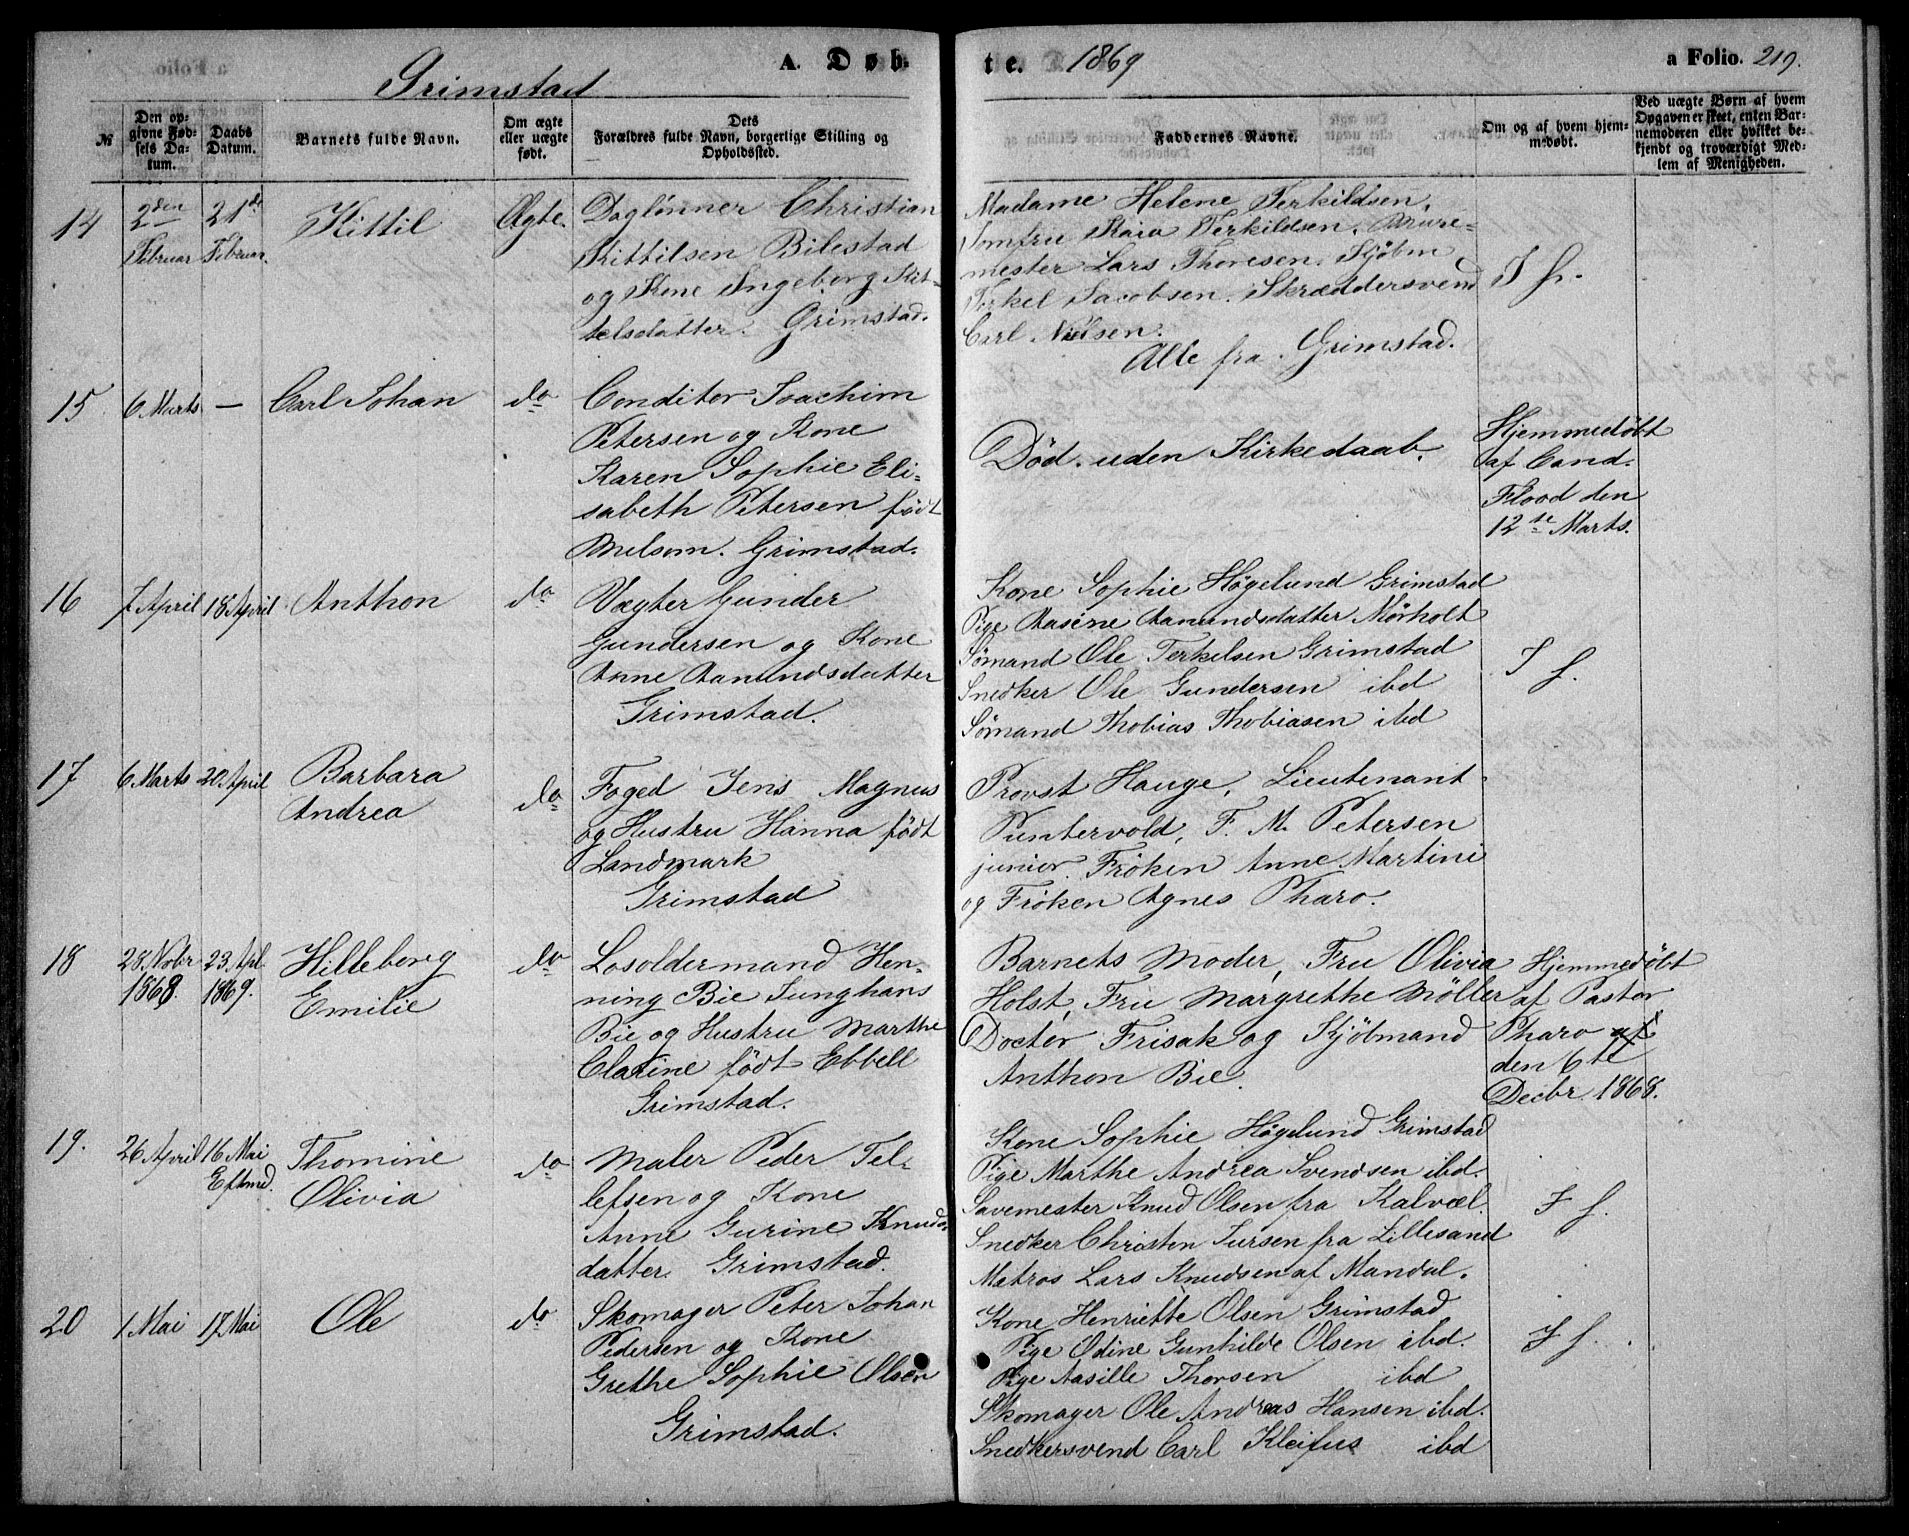 Grimstad A. Døbte. 1869 a Folio. 219.
№
Den opgivne Fødsels Datum.
Daabs Datum.
Barnets fulde Navn.
Om ægte eller uægte født.
Dets Forældres fulde Navn, borgerlige Stilling og Opholdssted.
Faddernes Navne.
Om og af hvem hjemmedøbt.
Ved uægte Børn af hvem Opgaven er skeet, enten Barnemoderen eller hvilket bekjendt og troværdigt Medlem af Menigheden.
14
2den Februar
21de Februar.
Kittil
Ægte.
Daglønner Christian
Kittilsen Bilestad
og Kone Ingeborg Kit-
telsdatter. Grimstad.
Madame Helene Terkildsen,
Jomfru Kaia Terkildsen. Mure-
mester Lars Thoresen. Kjøbm
Terkel Jacobsen. Skræddersvend
Carl Nielsen.
Alle fra Grimstad.
J f.
15
6 Marts
—
Carl Johan
do
Conditor Joachim
Petersen og Kone
Karen Sophie Eli-
sabeth Petersen født
Melsom. Grimstad.
Død uden Kirkedaab.
Hjemmedøbt
af Cand.
Flood den
12te Marts.
16
7 April
18 April
Anthon
do
Vægter Gunder
Gundersen og Kone
Anne Aanundsdatter
Grimstad.
Kone Sophie Høgelund Grimstad
Pige Aasine Aanundsdatter Mørholt
Sømand Ole Terkelsen Grimstad
Snedker Ole Gundersen ibd
Sømand Thobias Thobiasen ibd
J f.
17
6 Marts
20 April
Barbara
Andrea
do
Foged Jens Magnus
og Hustru Hanna født
Landmark
Grimstad
Provst Hauge, Lieutenant
Puntervold, F. M. Petersen
junior. Frøken Anne Martini
og Frøken Agnes Pharo.
18
28 Nobr 1868.
23 Apl 1869.
Hilleborg
Emilie
do
Losoldermand Hen-
ning Bie Junghans
Bie og Hustru Marthe
Clarine født Ebbell
Grimstad.
Barnets Moder, Fru Olivia
Holst, Fru Margrethe Møller
Doctor Frisak og Kjøbmand
Anthon Bie.
Hjemmedøbt
af Pastor
Pharo
den 6te
Decbr 1868.
19.
26 April
16 Mai Eftmd.
Thomine
Olivia
do
Maler Peder Tel-
lefsen og Kone
Anne Gurine Knuds-
datter. Grimstad.
Kone Sophie Høgelund Grimstad
Pige Marthe Andrea Svendsen ibd.
Savemester Knud Olsen fra Kalvæl.
Snedker Christen Jursen fra Lillesand
Matros Lars Knudsen af Mandal.
J f.
20
1 Mai
17 Mai
Ole
do
Skomager Peter Johan
Pedersen og Kone
Grethe Sophie Olsen
Grimstad.
Kone Henriette Olsen Grimstad
Pige Odine Gunhilde Olsen ibd.
Pige Aasille Thorsen ibd
Skomager Ole Andreas Hansen ibd.
Snedkersvend Carl Kleifus ibd
J f.